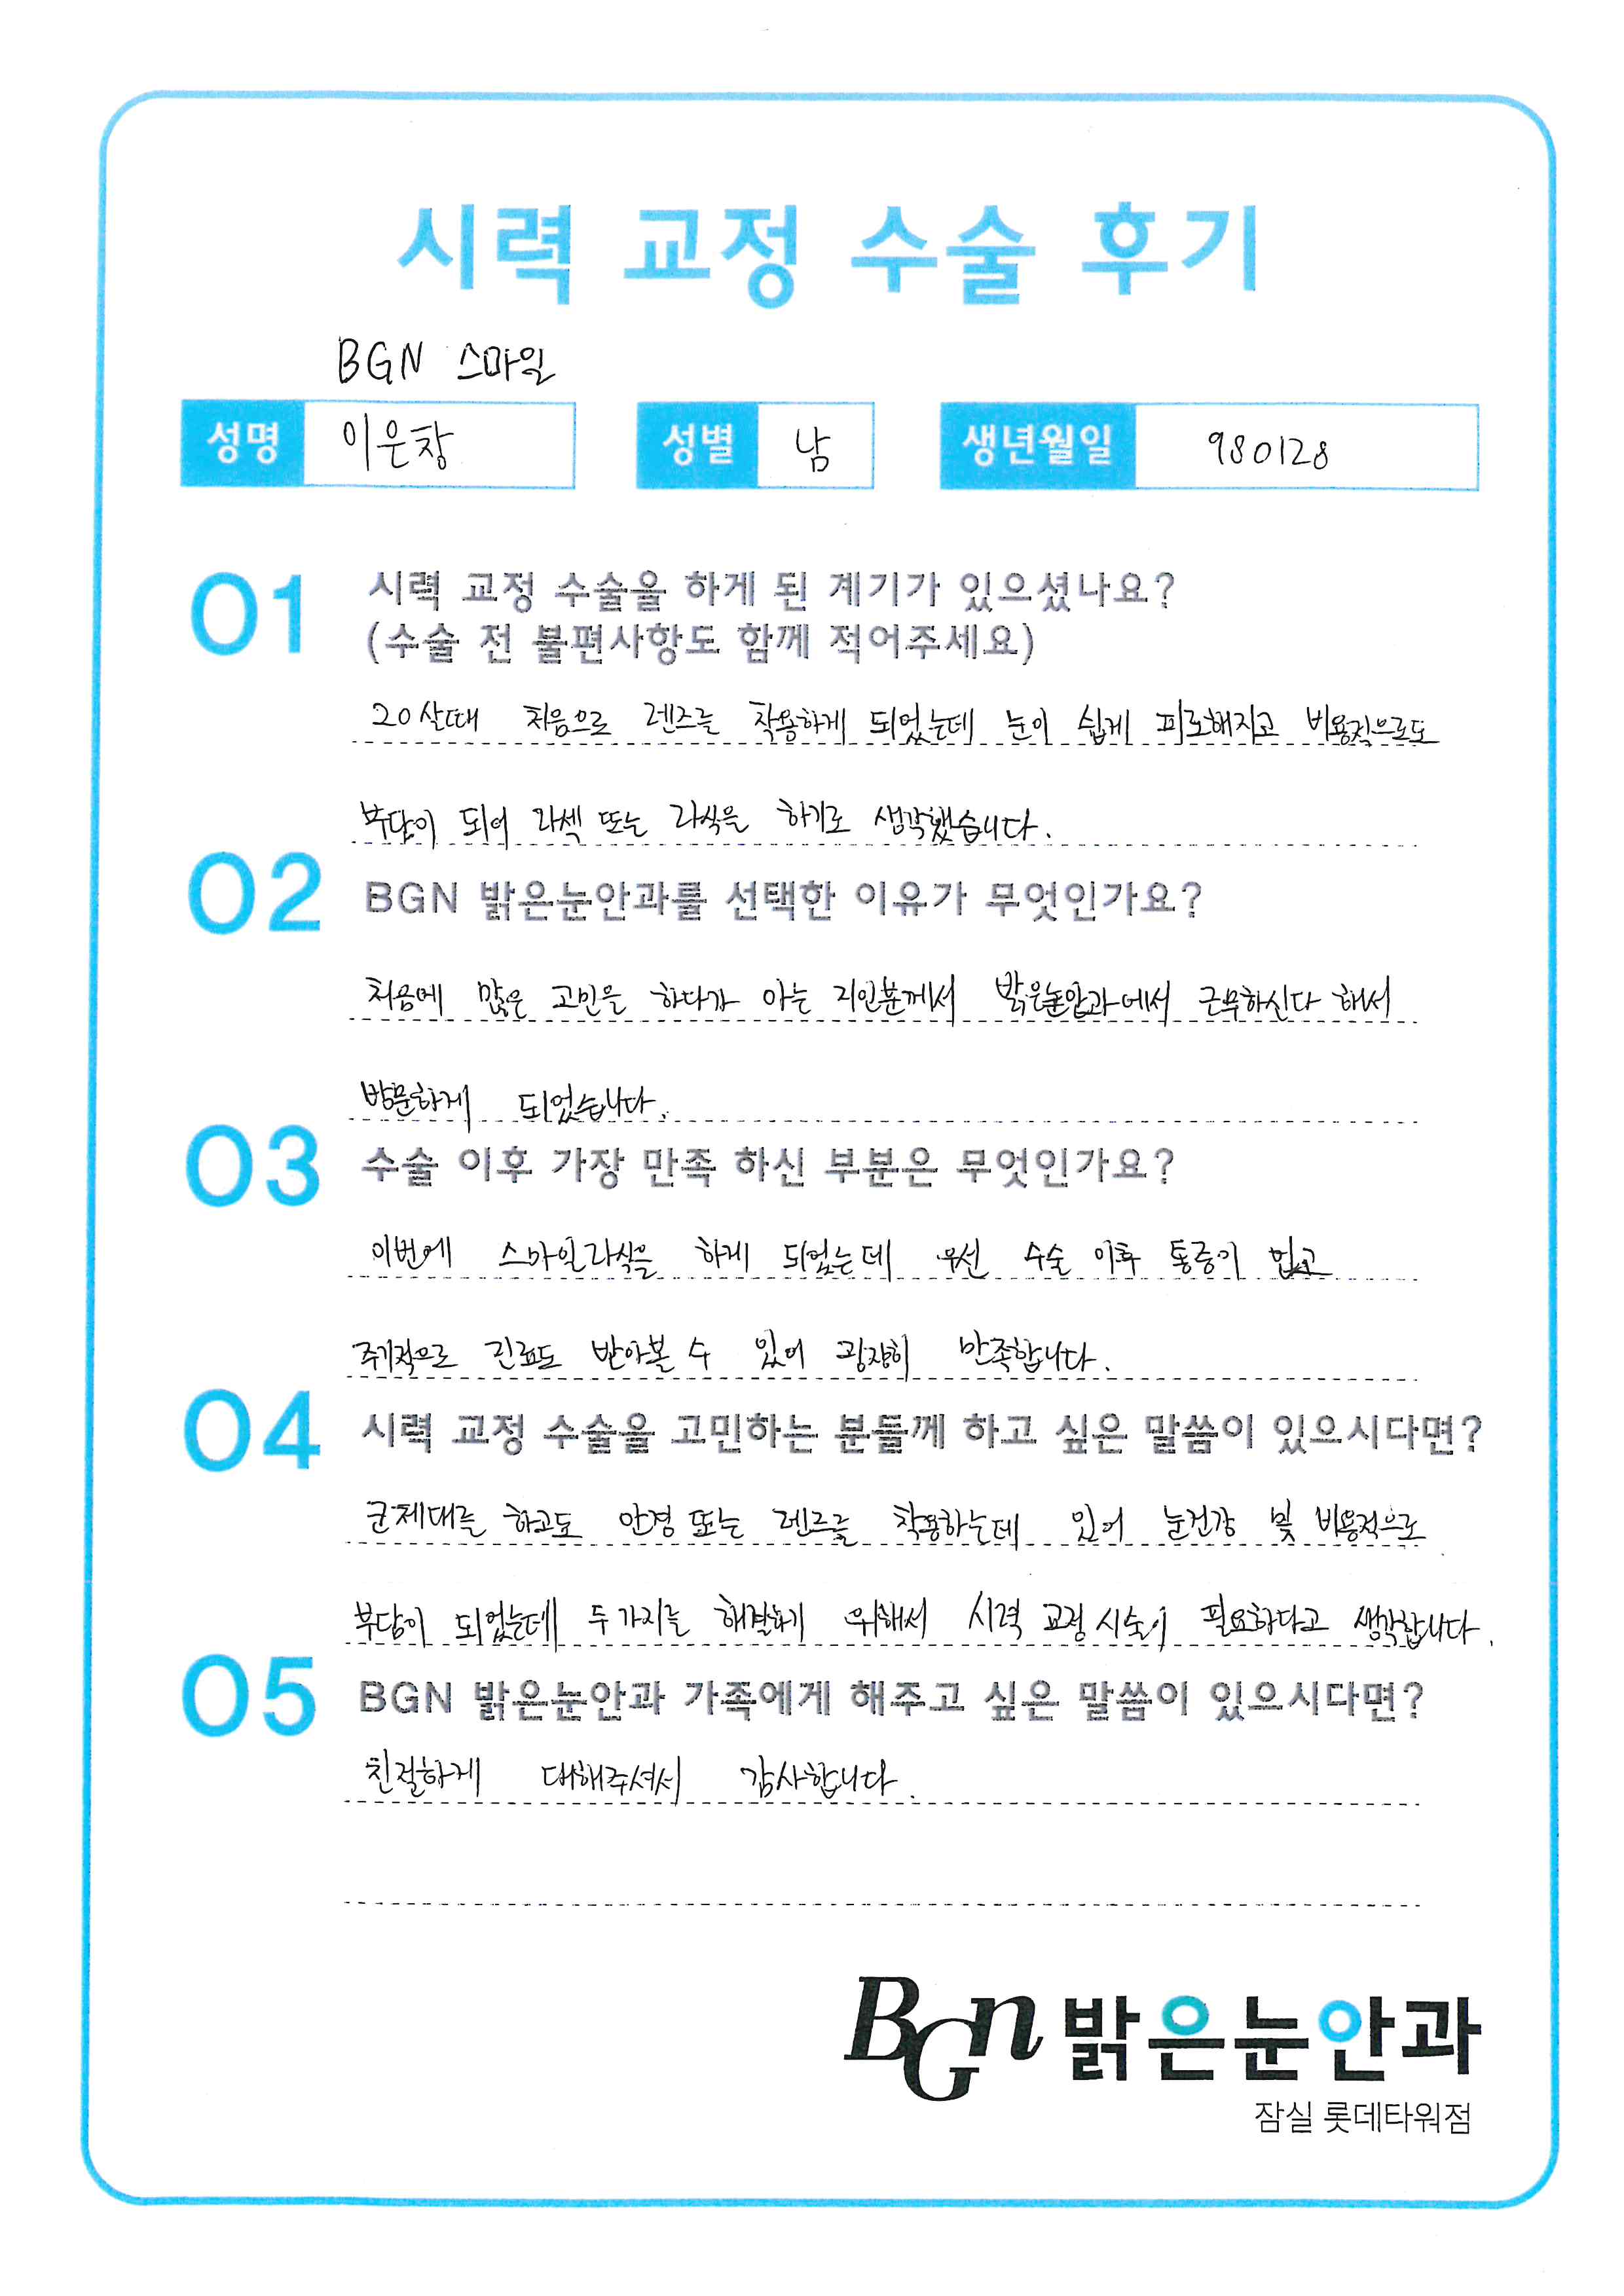 시력 교정 수술 후기
BGN 스마일
성명 이은창 성별 남 생년월일 980128
01 시력 교정 수술을 하게 된 계기가 있으셨나요?
(수술 전 불편사항도 함께 적어주세요)
20살때 처음으로 렌즈를 착용하게 되었는데 눈이 쉽게 피로해지고 비용적으로도
부담이 되어 라섹 또는 라식을 하기로 생각했습니다.
02 BGN 밝은눈안과를 선택한 이유가 무엇인가요?
처음에 많은 고민을 하다가 아는 지인분께서 밝은눈안과에서 근무하신다 해서
방문하게 되었습니다.
03 수술 이후 가장 만족 하신 부분은 무엇인가요?
이번에 스마일라식을 하게 되었는데 우선 수술 이후 통증이 없고
주기적으로 진료도 받아볼 수 있어 굉장히 만족합니다.
04 시력 교정 수술을 고민하는 분들께 하고 싶은 말씀이 있으시다면?
군제대를 하고도 안경 또는 렌즈를 착용하는데 있어 눈건강 및 비용적으로
부담이 되었는데 두가지를 해결하기 위해서 시력 교정 시술이 필요하다고 생각합니다.
05 BGN 밝은눈안과 가족에게 해주고 싶은 말씀이 있으시다면?
친절하게 대해주셔서 감사합니다.
BGN 밝은눈안과
잠실 롯데타워점